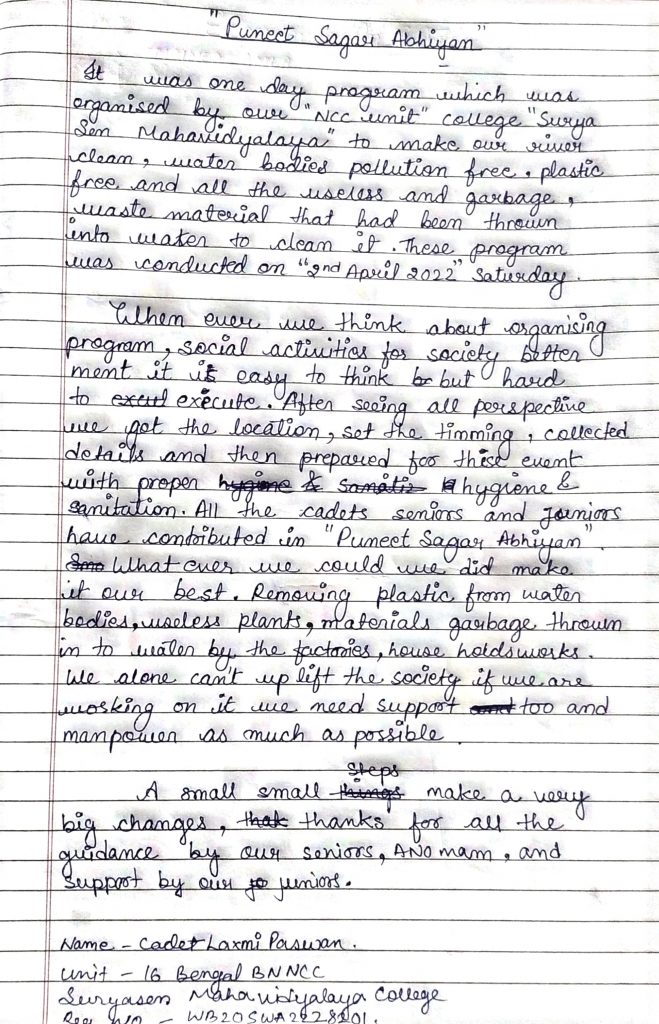 "Puneet Sagar Abhiyan"
It was one day program which was
organised by our "NCC unit" college "Surya
Sen Mahavidyalaya" to make our river
clean, water bodies pollution free, plastic
free and all the useless and garbage,
waste material that had been thrown
into water to clean it. These program
was conducted on "2nd April 2022" Saturday.
When ever we think about organising
program, social activities for society better
ment it is easy to think but hard
to execute. After seeing all perspective
we got the location, set the timming, collected
details and then prepared for this event
with proper hygiene &
sanitation. All the cadets seniors and jouniors
have contributed in "Puneet Sagar Abhiyan".
What ever we could we did make
it our best. Removing plastic from water
bodies, useless plants, materials garbage thrown
in to water by the factories, house holdsworks.
We alone can't up lift the society if we are
working on it we need support too and
manpower as much as possible.
steps
A small small things make a very
big changes, thanks for all the
guidance by our seniors, ANO mam, and
support by our juniors.
Name - Cadet Laxmi Paswan.
Unit - 16 Bengal BN NCC
Suryasen Mahavidyalaya College
Reg NO - WB20SWA2228201.